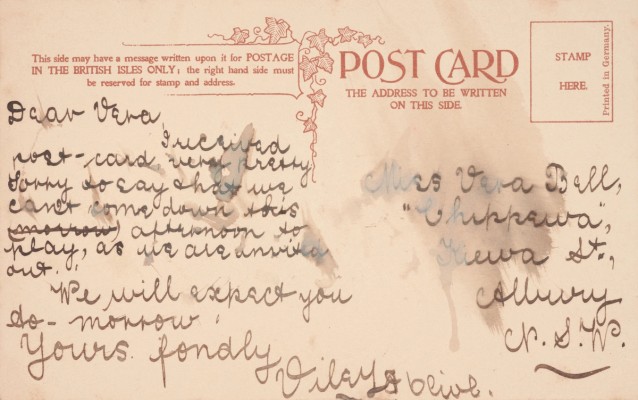 This side may have a message written upon it for POSTAGE
IN THE BRITISH ISLES ONLY; the right hand side must
be reserved for stamp and address.
POST CARD
THE ADDRESS TO BE WRITTEN
ON THIS SIDE.
STAMP
HERE.
Printed in Germany.
Dear Vera
I received
post-card very pretty
Sorry to say that we
can't come down this
(morrow) afternoon to
play, as we are invited
out.
We will expect you
to-morrow.
Yours fondly
Miss Vera Bell,
"Chippewa",
Kiewa St.,
Albury
N.S.W.